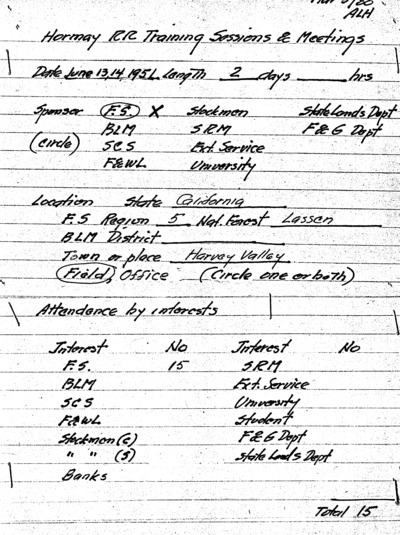 ALH
Hormay RR Training Sessions & Meetings
Date June 13,14 1951 Length 2 days ___ hrs
Sponsor F.S. X Stockmen State Lands Dept
BLM SRM F&G Dept
(circle) SCS Ext. Service
F&WL University
Location State California
F.S Region 5 Nat. Forest Lassen
BLM District
Town or place Harvey Valley
Field, Office (Circle one or both)
Attendance by interests
Interest No Interest No
F.S. 15 SRM
BLM Ext. Service
SCS University
F&WL Student
Stockmen (c) F&G Dept
" " (S) State Lands Dept
Banks
Total 15